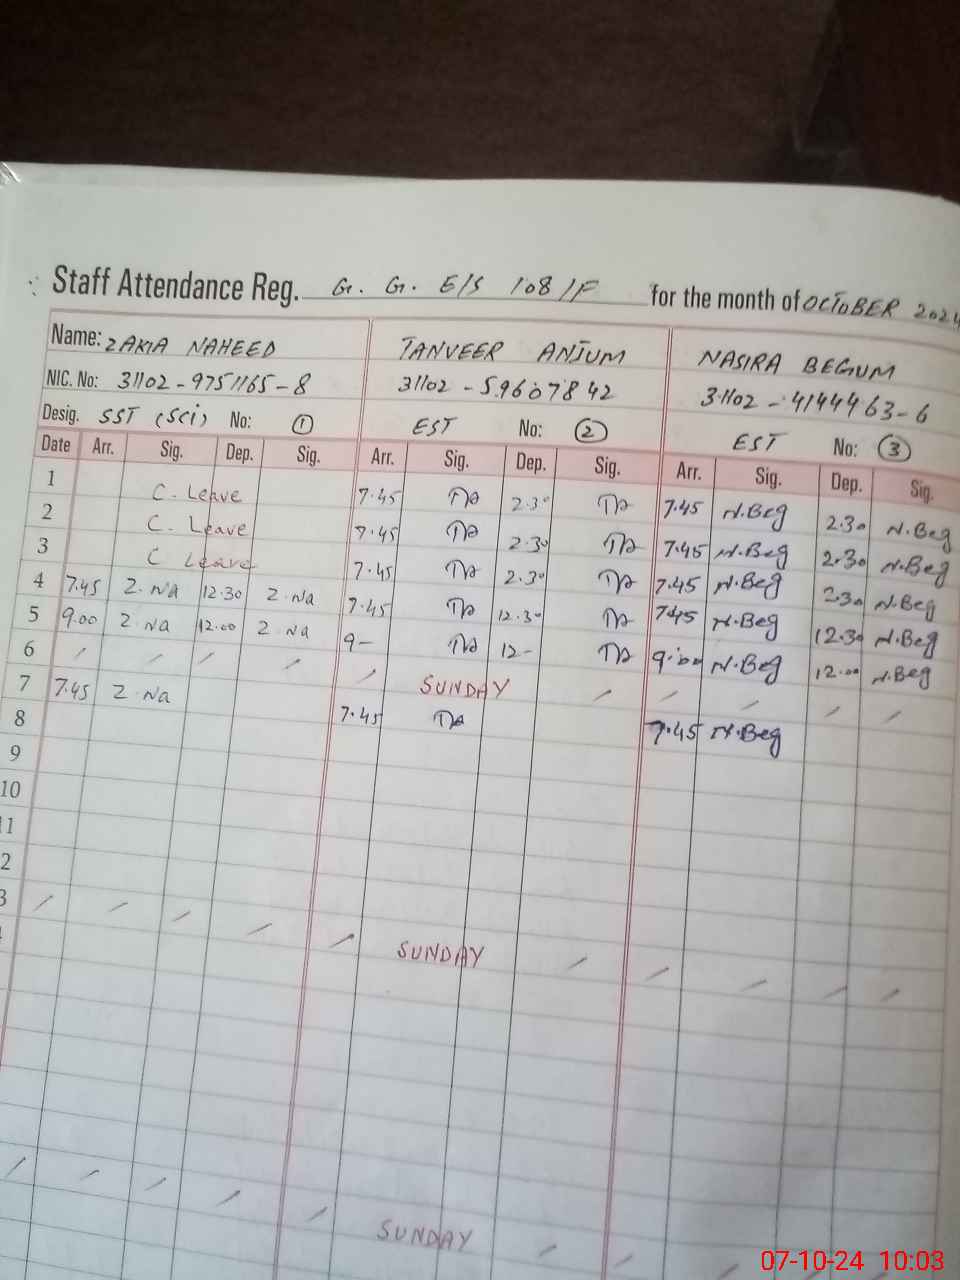 Staff Attendance Reg. G. G. E/S 108/F for the month of OCTOBER 2024
Name: ZAKIA NAHEED TANVEER ANJUM NASIRA BEGUM
NIC. No: 31102-9751165-8 31102-59607842 31102-4144463-6
Desig. SST (Sci) No: 1 EST No: 2 EST No: 3
Date Arr. Sig. Dep. Sig. Arr. Sig. Dep. Sig. Arr. Sig. Dep. Sig.
1 C. Leave 7.45 TA 2.30 TA 7.45 N.Beg 2.30 N.Beg
2 C. Leave 7.45 TA 2.30 TA 7.45 N.Beg 2.30 N.Beg
3 C Leave 7.45 TA 2.30 TA 7.45 N.Beg 2.30 N.Beg
4 7.45 Z.Na 12.30 Z.Na 7.45 TA 12.30 TA 7.45 N.Beg 12.30 N.Beg
5 9.00 Z.Na 12.00 Z.Na 9- TA 12- TA 9.00 N.Beg 12.00 N.Beg
6 / / / / / SUNDAY / / / / /
7 7.45 Z.Na 7.45 TA 7.45 N.Beg
8
9
10
11
2
3 / / / / / SUNDAY / / / / /
/ / / / / SUNDAY / / / /
07-10-24 10:03